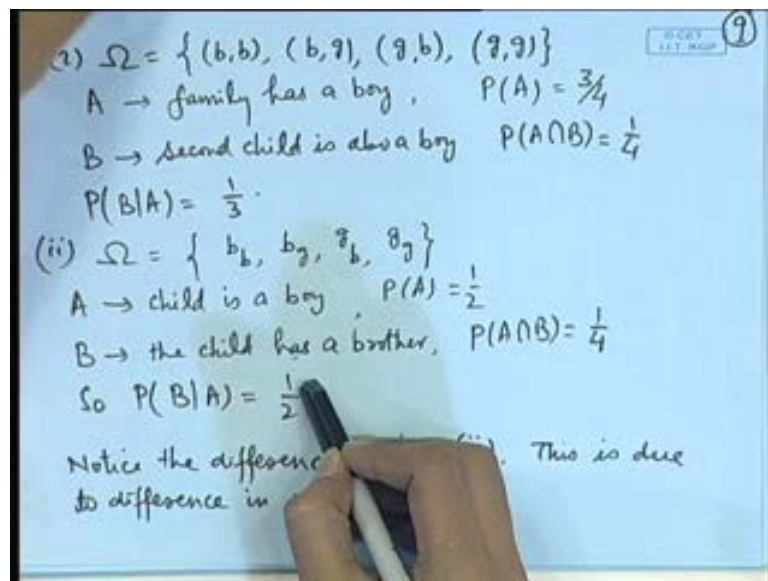 (i) Ω = { (b,b), (b,g), (g,b), (g,g)}
A → family has a boy, P(A) = 3/4
B → second child is also a boy P(A∩B) = 1/4
P(B|A) = 1/3.
(ii) Ω = { b_b, b_g, g_b, g_g}
A → child is a boy, P(A) = 1/2
B → the child has a brother, P(A∩B) = 1/4
So P(B|A) = 1/2
Notice the difference (ii). This is due
to difference in
9
I.I.T. KGP